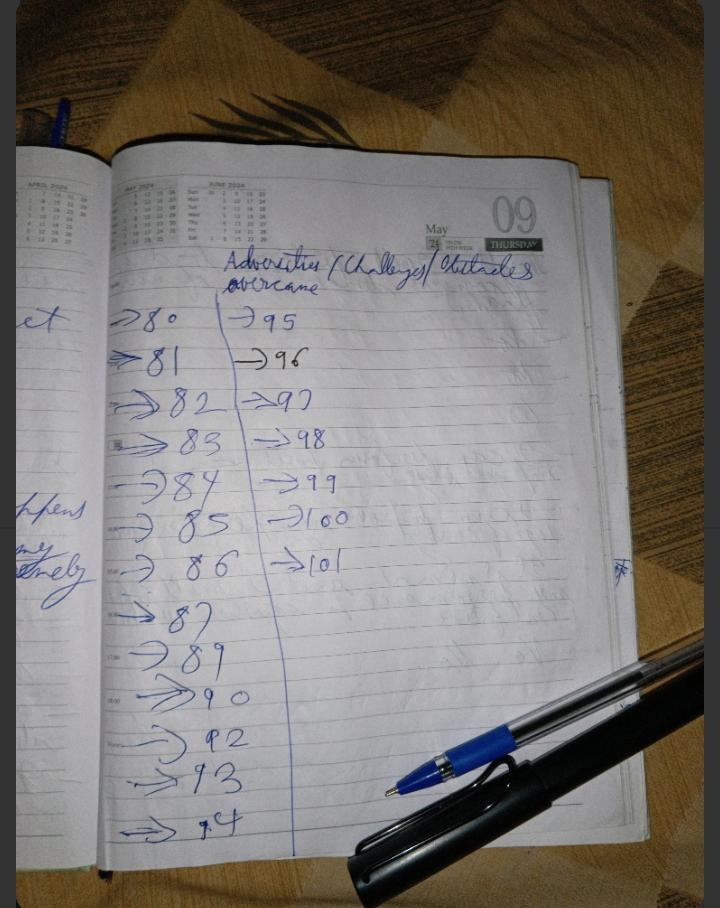 APRIL 2024
MAY 2024
JUNE 2024
09
May
24
THURSDAY
Adversities / Challenges / Obstacles
overcame
et
→ 80
→ 81
→ 82
→ 83
→ 84
→ 85
→ 86
→ 87
→ 89
→ 90
→ 92
→ 93
→ 94
→ 95
→ 96
→ 97
→ 98
→ 99
→ 100
→ 101
ppens
my